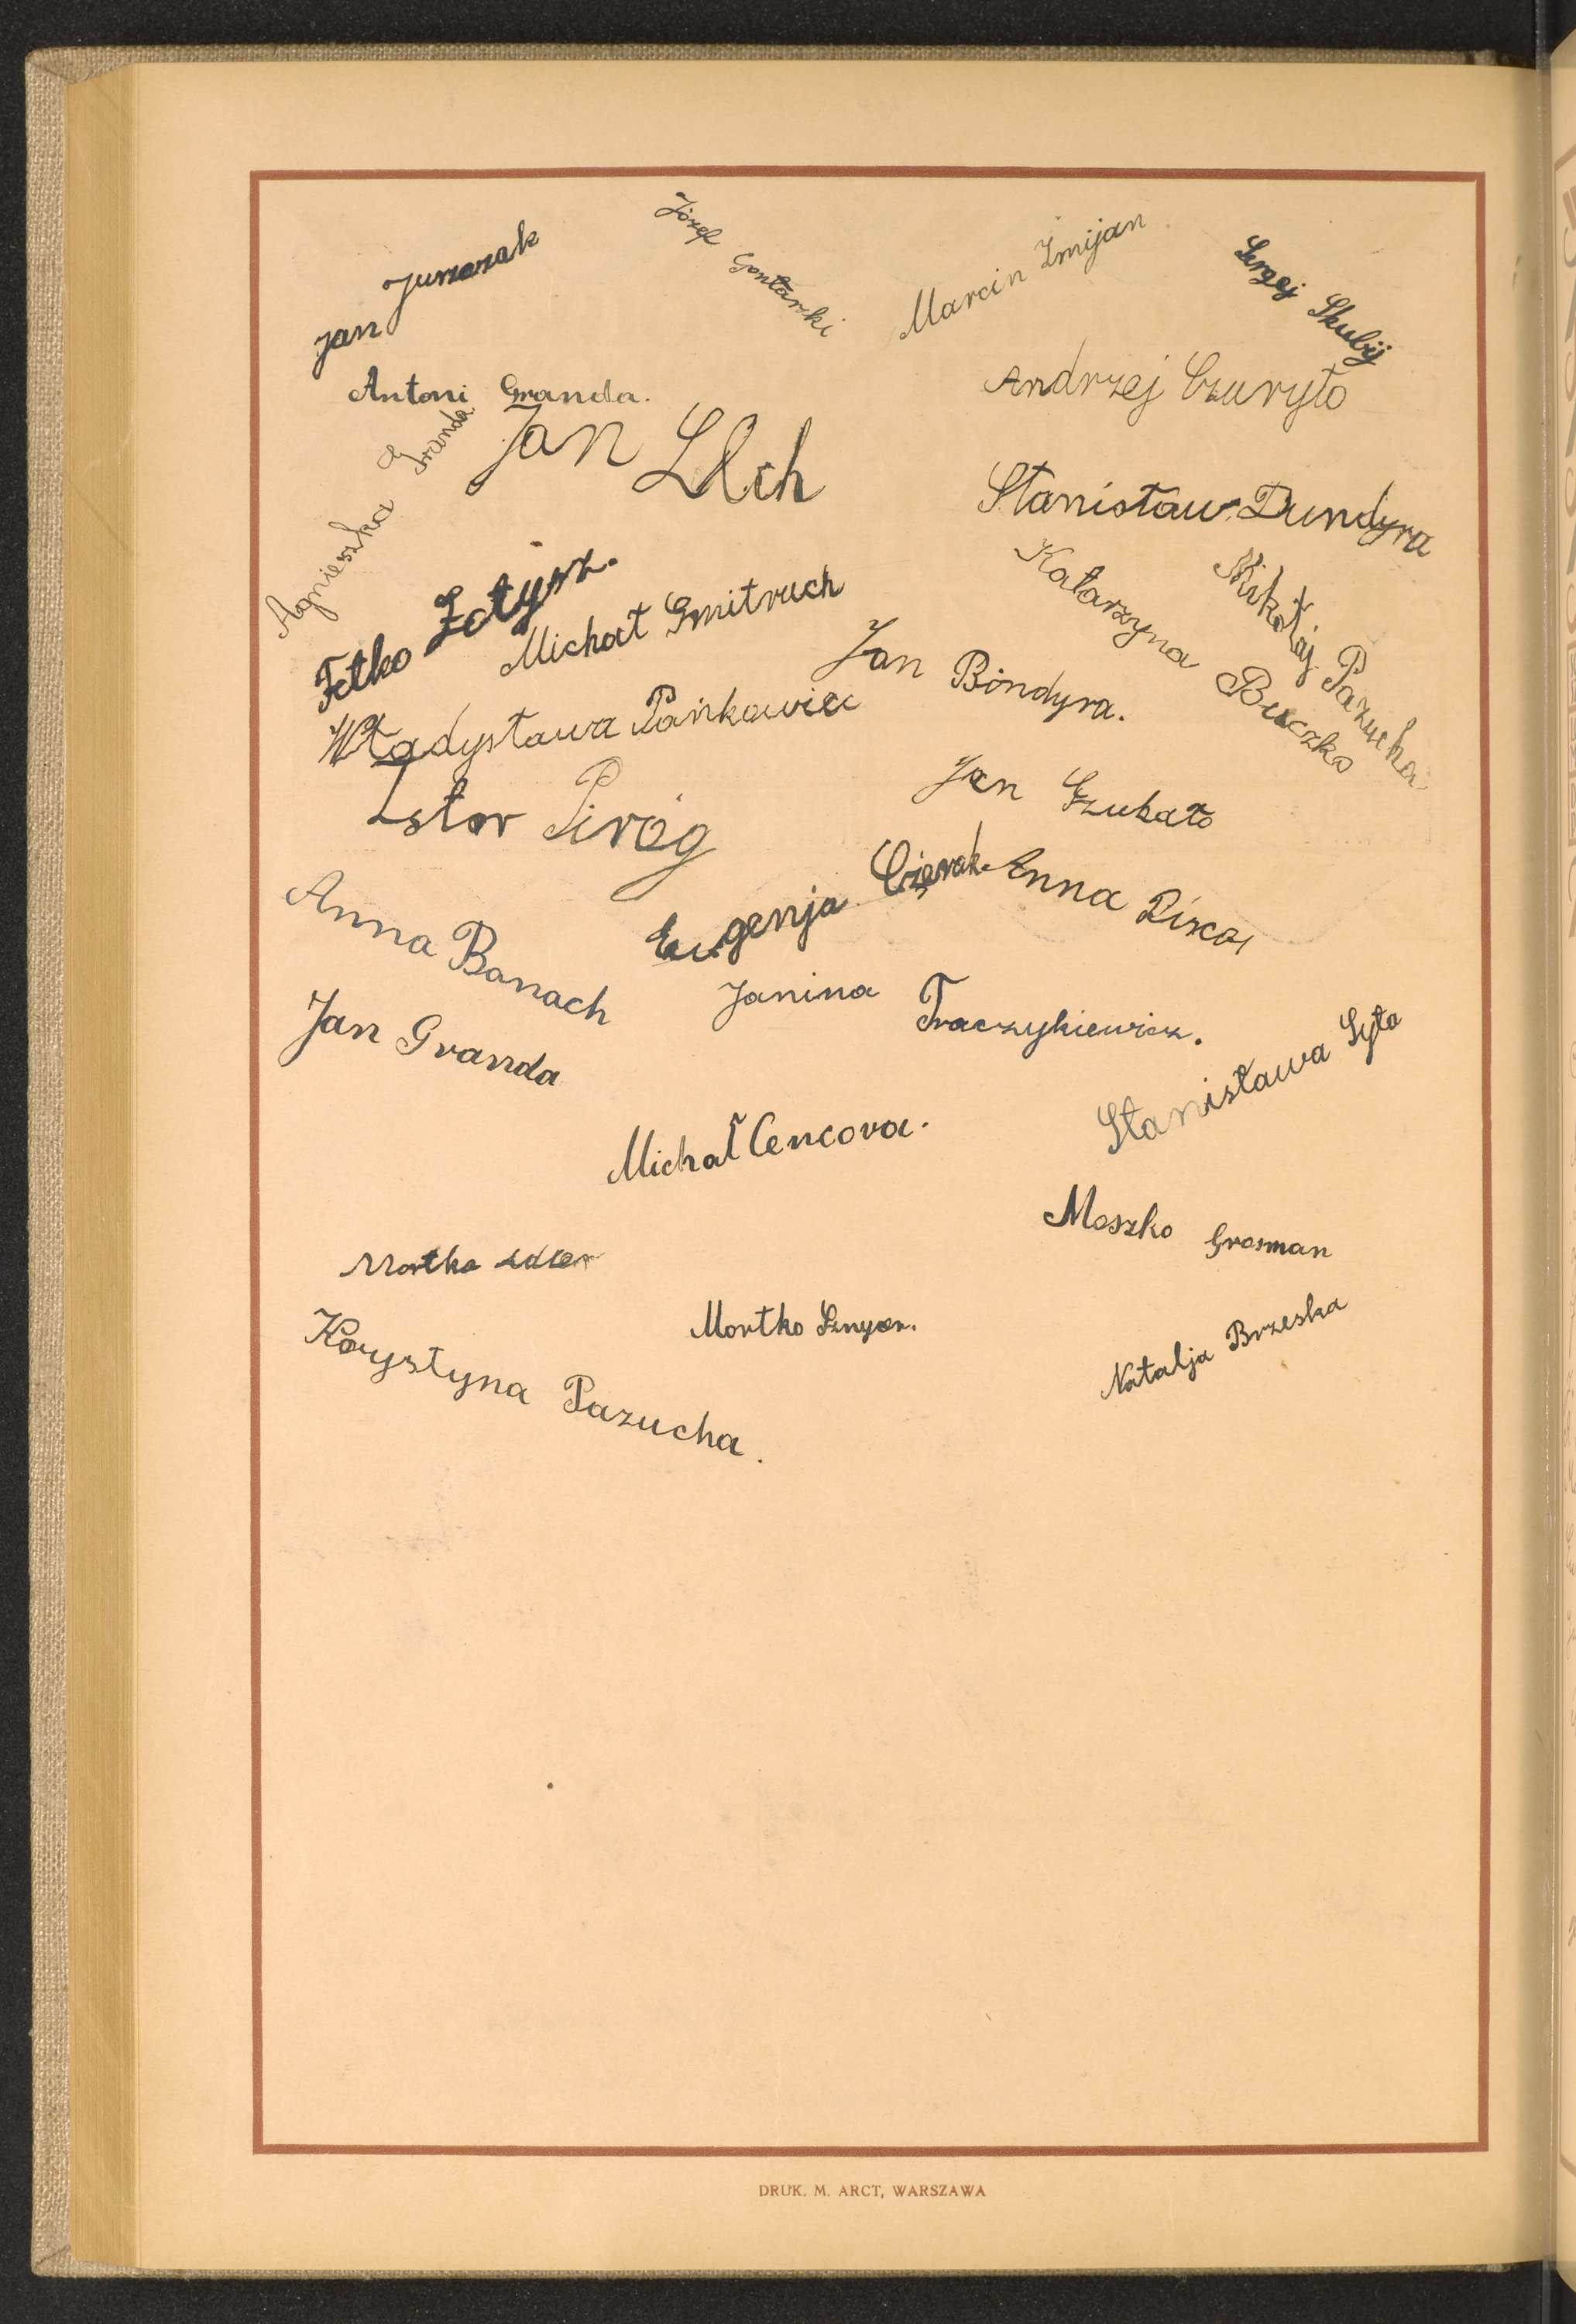 Jan Juszczak
Józef Gontarski
Marcin Żmijan
Sergej Skubij
Antoni Granda.
Andrzej Czuryło
Agnieszka Granda
Jan
Stanisław Dundyra
Fetko
Michał Gmitruch
Katarzyna Buczko
Mikołaj Pazucha
Jan Bondyra.
Władysława Pańkowiec
Jan
Piróg
Eugenja
Anna
Anna Banach
Janina Traczykiewicz.
Jan Granda
Stanisława Syta
Michał Cencora.
Moszko Grosman
Mortko Adler
Mortko
Natalja Brzeska
Krystyna Pazucha.
DRUK. M. ARCT, WARSZAWA